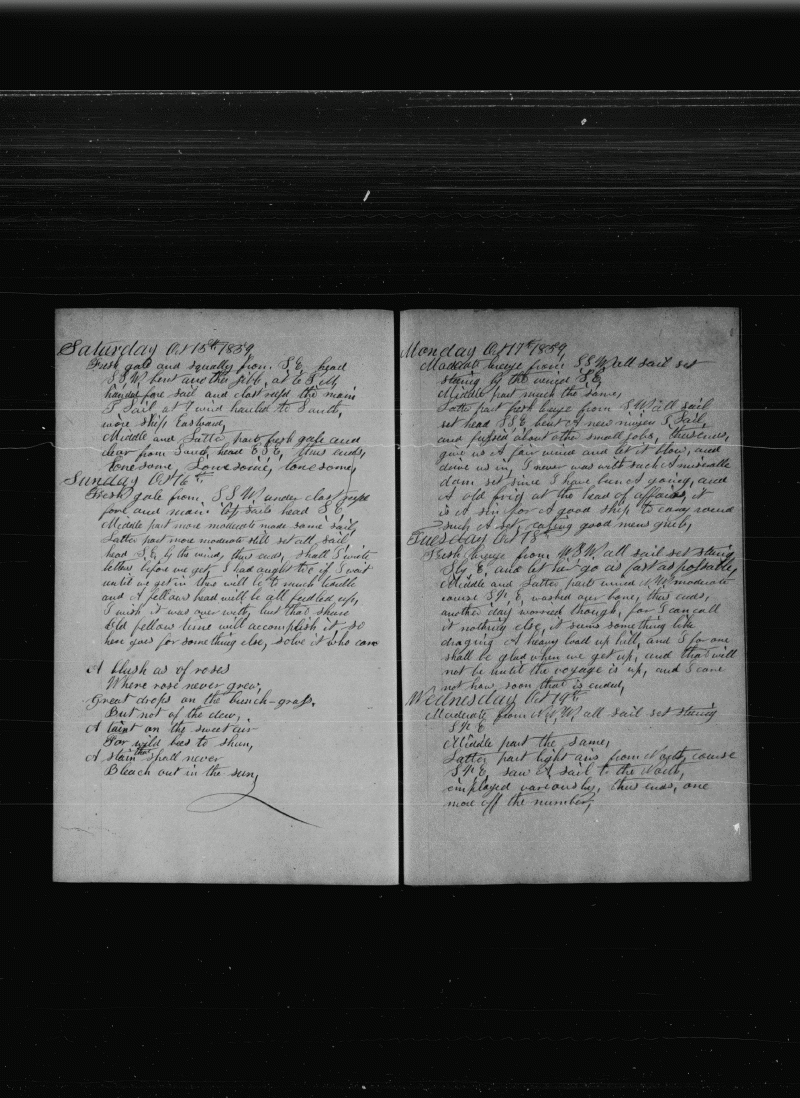 Saturday Oct 15th 1859,
Fresh gale and squally from S.E. head
S.S.W. bent another jibb, at 6 P.M.
handed fore sail and close reefd the main
T Sail, at 7 wind hauled to South,
wore ship Eastward,
Middle and Latter part fresh gale and
clear from South, head E.S.E, thus ends,
lonesome, Lonesome, lonesome,
Sunday Oct 16th
Fresh gale from S.S.W. under close reefd
fore and main top sails head S.E.
Middle part more moderate made some sail,
Latter part more moderate still set all sail,
head S.E. by the wind, thus ends, shall I write
letters before we get I had aught to if I wait
until we get in thus will be to much trouble
and A fellows head will be all fuddled up,
I wish it was over with, but that shure
Old fellow time will accomplish it, so
here goes for something else, solve it who can
A blush as of roses
Where rose never grew,
Great drops on the bunch-grass,
But not of the dew,
A taint on the sweet air
For wild bees to shun,
A stain that shall never
Bleach out in the sun,
Monday Oct 17th 1859,
Moderate breeze from S.S.W. all sail set
stering by the wind S.E.
Middle part much the same,
Latter part fresh breeze from S.W. all sail
set head S.S.E. bent A new mizen T. Sail,
and fussed about other small jobs, thus ends,
give us A fair wind and let it blow, and
drive us in, I never was with such A miserable
dam set since I have been A going, and
A old frig at the head of affairs, it
is A sin for A good ship to carry round
such A set, eating good mens grub,
Tuesday Oct 18th
Fresh breeze from W.S.W. all sail set stering
S by E, and let her go as fast as possable,
Middle and Latter parts wind N.W. moderate
course S by E, washed our bone, thus ends,
another day worried though, for I can call
it nothing else, it seems something like
draging A heavy load up hill, and I for one
shall be glad when we get up, and that will
not be until the voyage is up, and I care
not how soon that is ended,
Wednesday Oct 19th
Moderate from N.N.W. all sail set stering
S by E
Middle part the same,
Latter part light airs from North, course
S by E, saw A sail to the North,
employed variously, thus ends, one
more off the number,